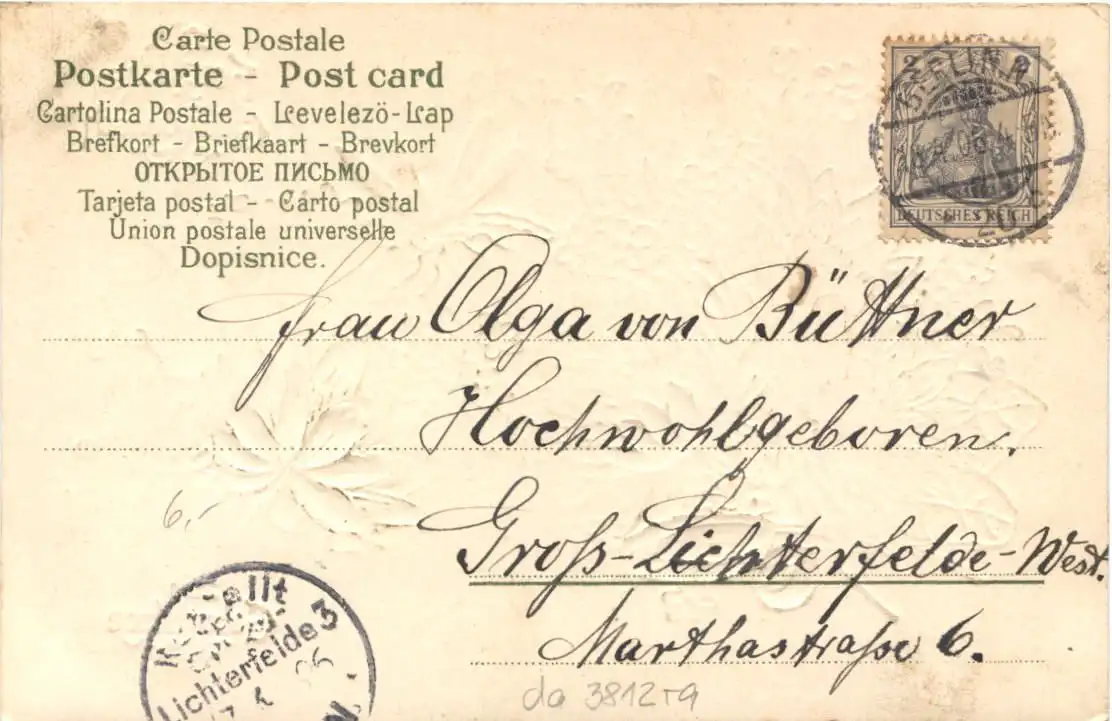 Carte Postale
Postkarte - Post card
Cartolina Postale - Levelezö-Lap
Brefkort - Briefkaart - Brevkort
ОТКРЫТОЕ ПИСЬМО
Tarjeta postal - Carto postal
Union postale universelle
Dopisnice.
2 2
BERLIN
DEUTSCHES REICH
Frau Olga von Büttner
Hochwohlgeboren.
Groß-Lichterfelde-West.
Marthastraße 6.
6,-
Lichterfelde 3
da 3812-9